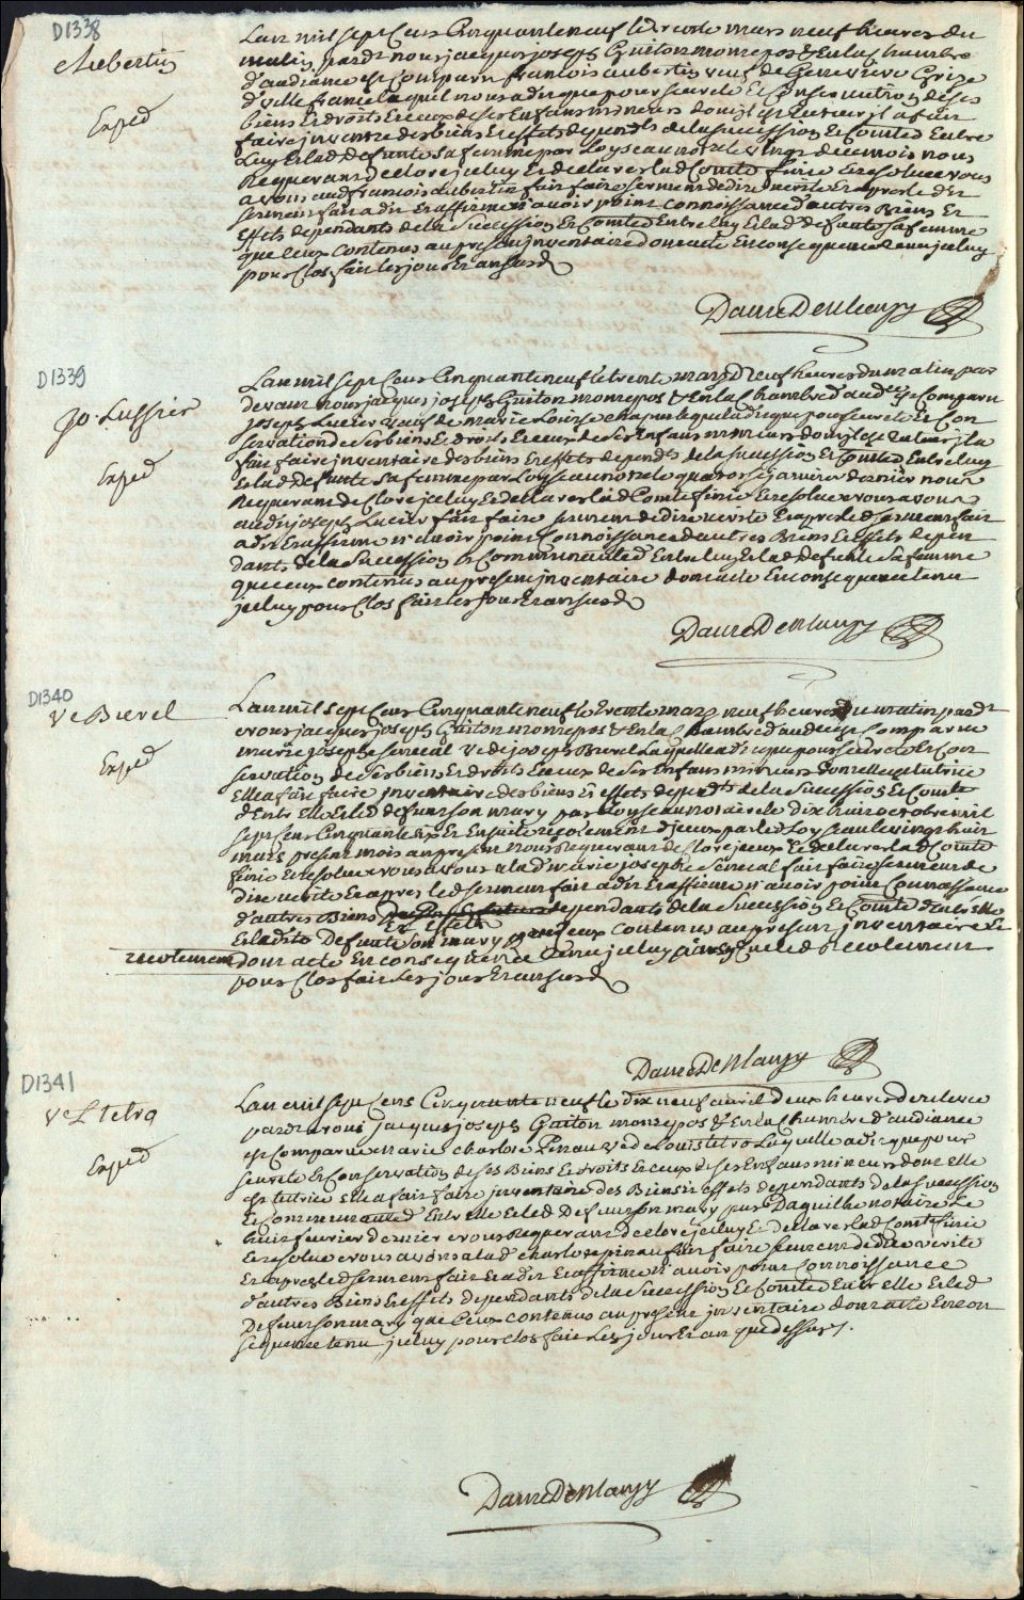 D1338
Aubertin
Exped
Lan mil sept Cens Cinquante neuf le trente mars neuf heures du
matin pardt nous jacques joseph Guiton monrepos & En la chambre
d'audiance est Comparu francois aubertin veuf de Genevieve
d'ville franche lequel nous a dit que pour seureté Et Conservation de ses
biens Et droits Et ceux de ses Enfans mineurs dont il est tuteur il a fait
faire inventre des biens Et effets dependts de la succession Et Comté Entre
Luy Et lad defunte sa femme par Loyseau notre le vingt de ce mois nous
Requerant de clore jceluy Et declarer lad Comté finie Et resolue nous
avons aud francois aubertin fait faire serment de dire verité Et apres led
serment fait a dit Et affirmé n'avoir point connoissance d'autres Biens Et
Effets dependants de la Succession Et Comted Entre luy Et lad defunte sa femme
que ceux Contenus au present jnventaire dont acte En consequence tenu jceluy
pour Clos fait les jour Et an susd
Daure De Blanzy
D1339
Jo. Lussier
Exped
Lan mil sept Cens Cinquante neuf le trente mars neuf heures du matin par
devant nous jacques joseph Guiton monrepos & En la chambre d'audce est Comparu
joseph Lucier veuf de marie Louise lequel a dit que pour seureté Et Con
servation de ses biens Et droits Et ceux de ses Enfans mineurs dont il est tuteur jl a
fait faire jnventaire des biens Et effets dependts de la succession Et Comted Entre luy
Et lad defunte sa femme par Loyseau notre le quatorze janvier dernier nous
Requerant de Clore jceluy Et declarer lad Comté finie Et resolue nous avons
audit joseph Lucier fait faire serment de dire verité Et apres led serment fait
a dit Et affirmé n'avoir point Connoissance d'autres Biens Et Effets depen
dants de la Succession Et Communauted Entre luy Et lad defunte sa femme
que ceux contenus au present jnventaire dont acte En consequence tenu
jceluy pour Clos fait les jour Et an susd
Daure De Blanzy
D1340
Ve Burel
Exped
Lan mil sept Cens Cinquante neuf le trente mars neuf heures du matin pardt
nous jacques joseph Guiton monrepos & En la chambre d'audce est Comparue
marie josephe senecal Ve de joseph Burel Laquelle a dit que pour seureté Et Con
servation de ses biens Et droits Et ceux de ses Enfans mineurs dont elle est tutrice
Elle a fait faire jnventaire des biens Et effets dependts de la Succession Et Comté
d'Entre elle Et led defunt son mary par Loyseau notaire le dix huit octobre mil
sept cens Cinquante six Et Ensuite recolement d'jceux par led Loyseau le vingt huit
mars present mois au present nous Requerant de clore jceux Et declarer lad Comté
finie Et resolue nous avons a lad marie josephe senecal fait faire serment de
dire verité Et apres led serment fait a dit Et affirmé n'avoir point Connoissance
d'autres Biens Et Effets dependants de la Succession Et Comté d'Entre elle
Et ledite Defunt son mary que ceux Contenus au present jnventaire Et
recolement dont acte En consequence tenu jceluy
pour Clos fait Les jour Et an susd
Daure De Blanzy
D1341
Ve Ltetro
Exped
Lan mil sept Cens Cinquante neuf le dix neuf avril deux heures de relevée
pardt nous jacques joseph Guiton monrepos & En la chambre d'audiance
est Comparue marie charlote Pinau Ve de Louis tetro Laquelle a dit que pour
seureté Et Conservation de ses Biens Et droits Et ceux de ses Enfans mineurs dont elle
est tutrice elle a fait faire jnventaire des Biens Et effets dependants de la succession
Et Communauted Entre elle Et led Defunt son mary par Daguilhe notaire le
huit fevrier dernier nous Requerant de clore jceluy Et declarer lad Comté finie
Et resolue nous avons a lad charlote pinau fait faire serment de dire verité
Et apres led serment fait Et a dit Et affirmé n'avoir point connoissance
d'autres Biens Et effets dependants de la Succession Et Comted Entre elle Et led
Defunt son mary que Ceux contenus au present jnventaire dont acte En con
sequence tenu jceluy pour clos fait Les jour Et an que dessus.
Daure De Blanzy